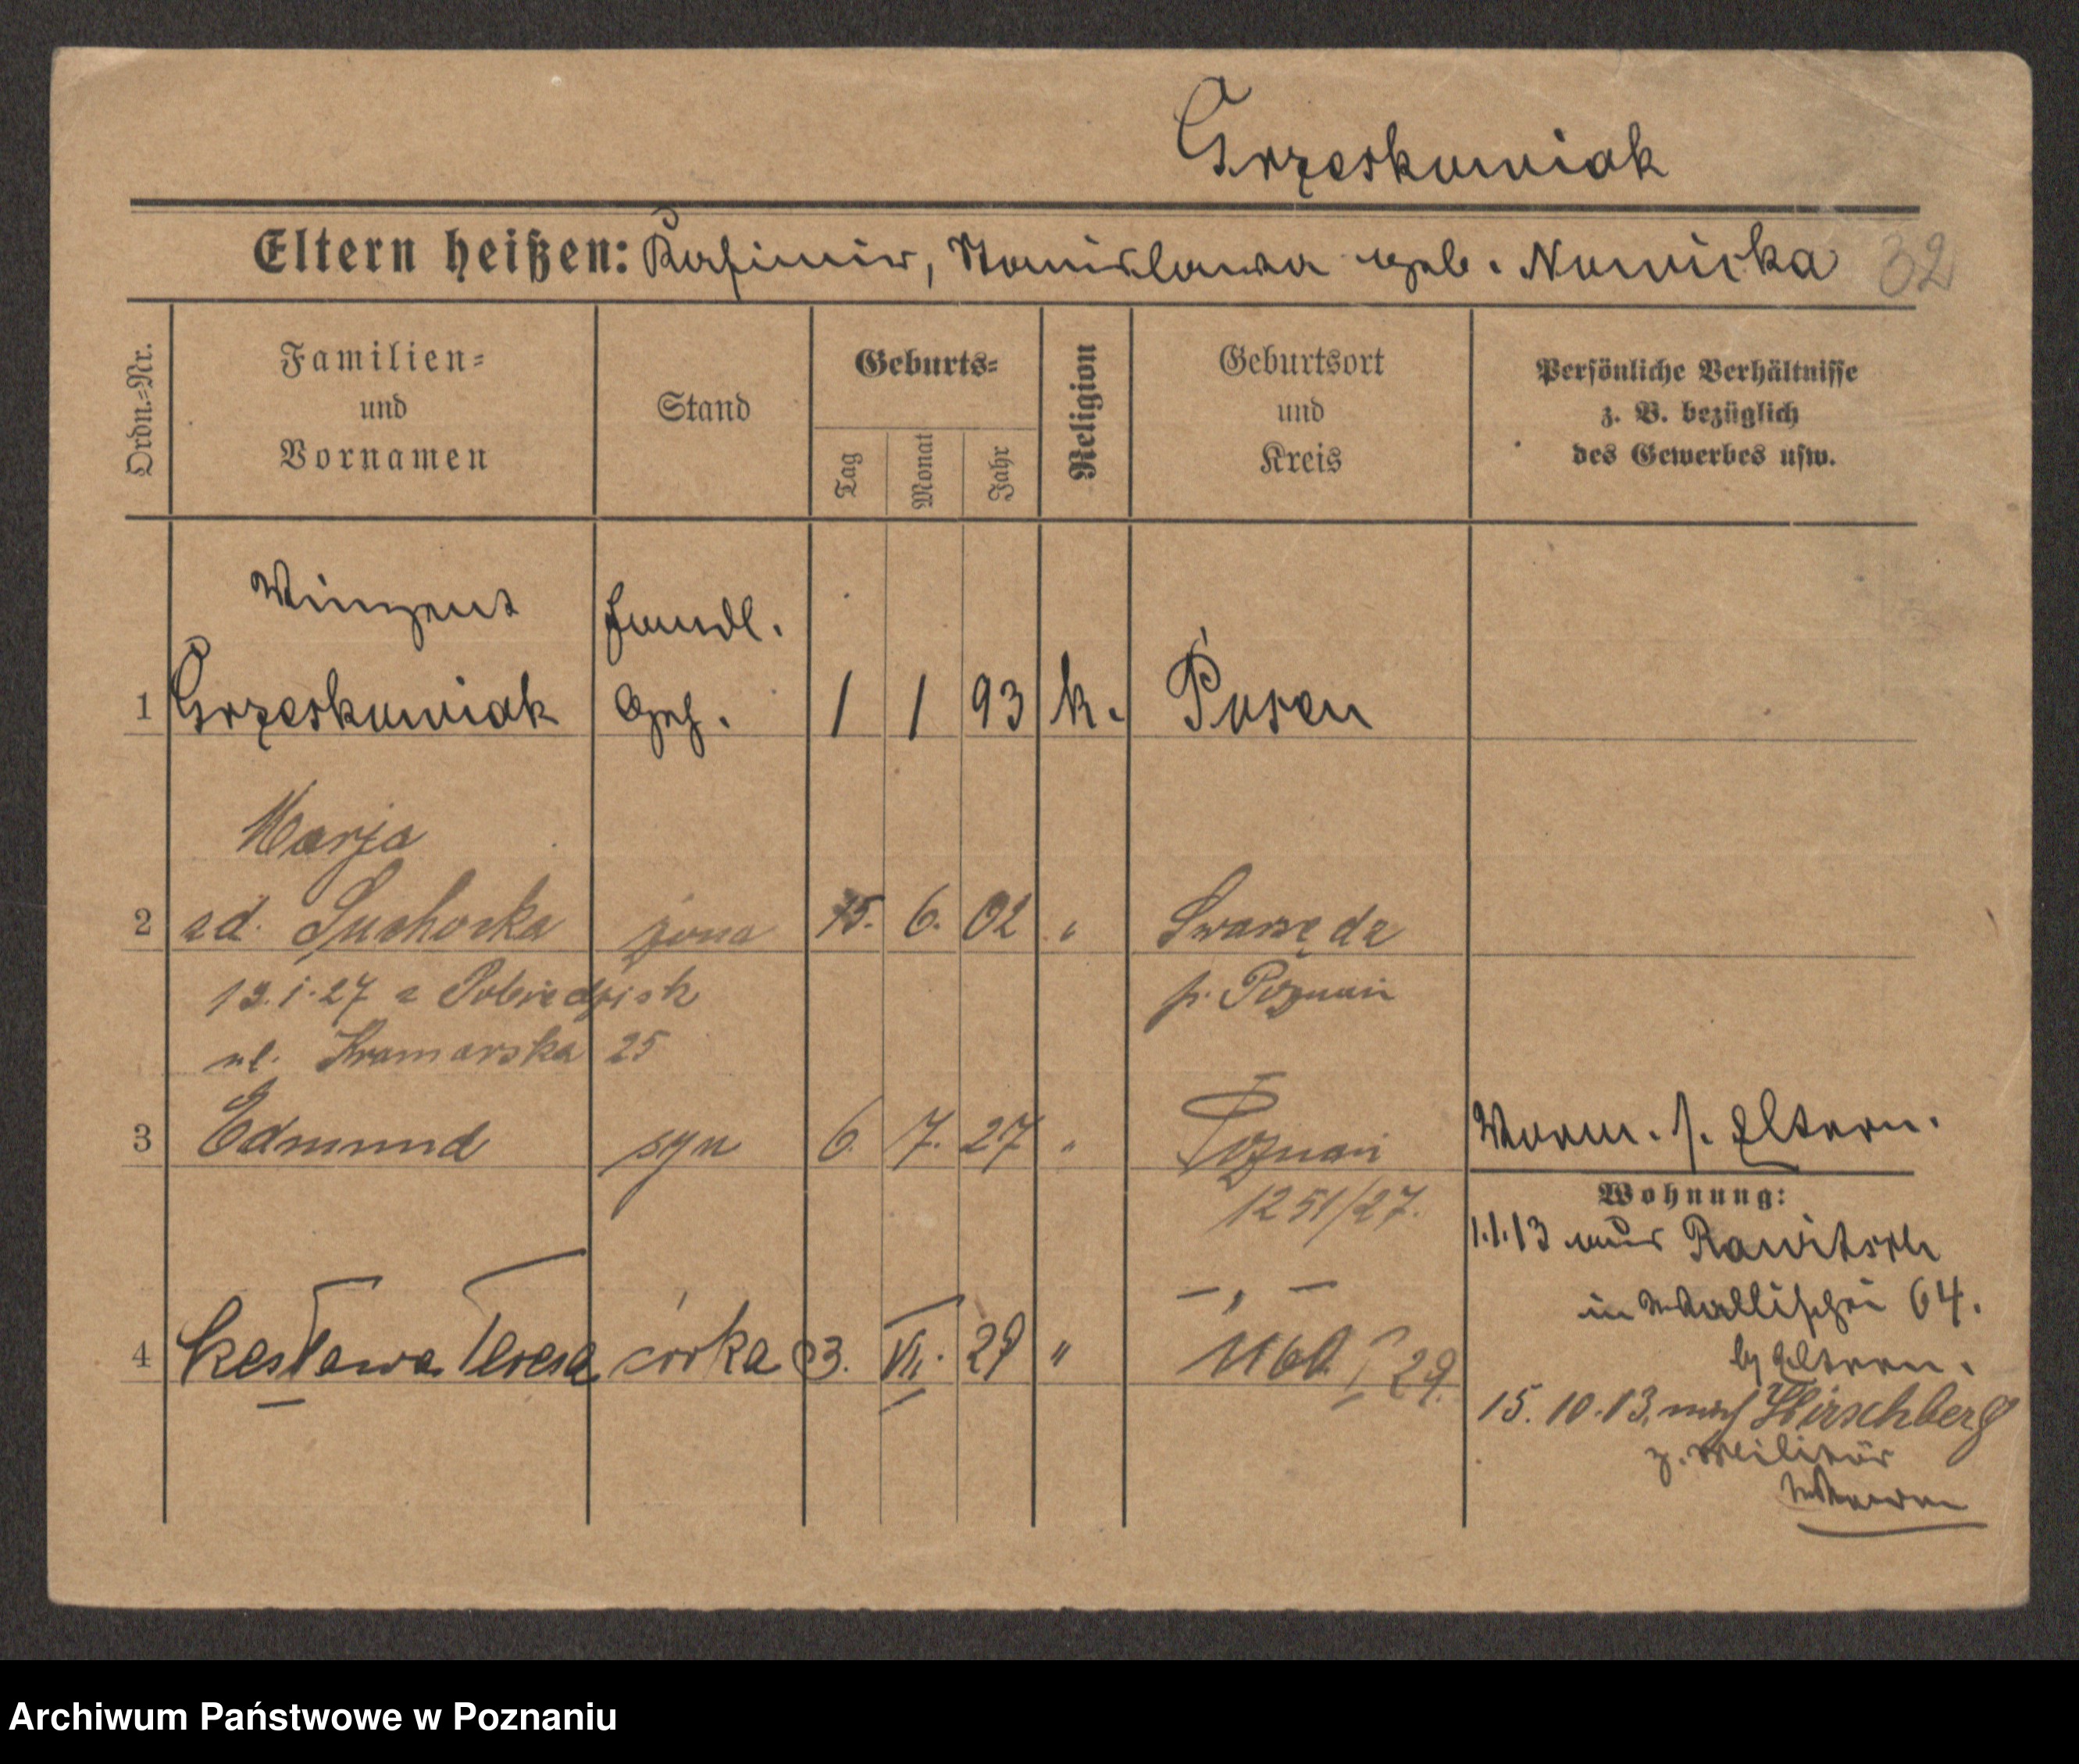 Grzeskowiak
Eltern heißen: Kasimir, Stanislawa geb. Nowicka 32
Ordn.-Nr.
Familien-
und
Vornamen
Stand
Geburts-
Tag
Monat
Jahr
Religion
Geburtsort
und
Kreis
Persönliche Verhältnisse
z. B. bezüglich
des Gewerbes usw.
Winzent Handl.
1 Grzeskowiak Geh. 1 1 93 k. Posen
Marja
2 zd. Suchorka żona 15. 6. 02 " Swarzędz
13.1.27 z Pobiedzisk p. Poznań
ul. Kramarska 25
3 Edmund syn 6. 7. 27 " Poznań
1251/27.
Vorm. s. Eltern.
Wohnung:
1.1.13 aus Rawitsch
in Wallischei 64.
b/ Eltern.
4 Czesława Teresa córka 23. VII. 29 " — " —
29.
15. 10. 13. nach Hirschberg
z. Militär